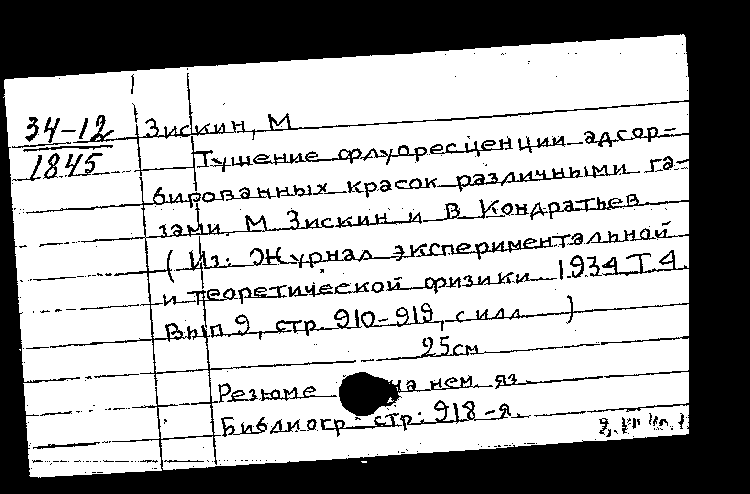 34-12
1845
Зискин, М
Тушение флуоресценции адсор-
бированных красок различными га-
зами. М. Зискин и В. Кондратьев.
(Из: Журнал экспериментальной
и теоретической физики. 1934. Т. 4.
Вып 9, стр. 910-919, с илл. )
25см
Резюме на нем. яз.
Библиогр. стр: 918-я.